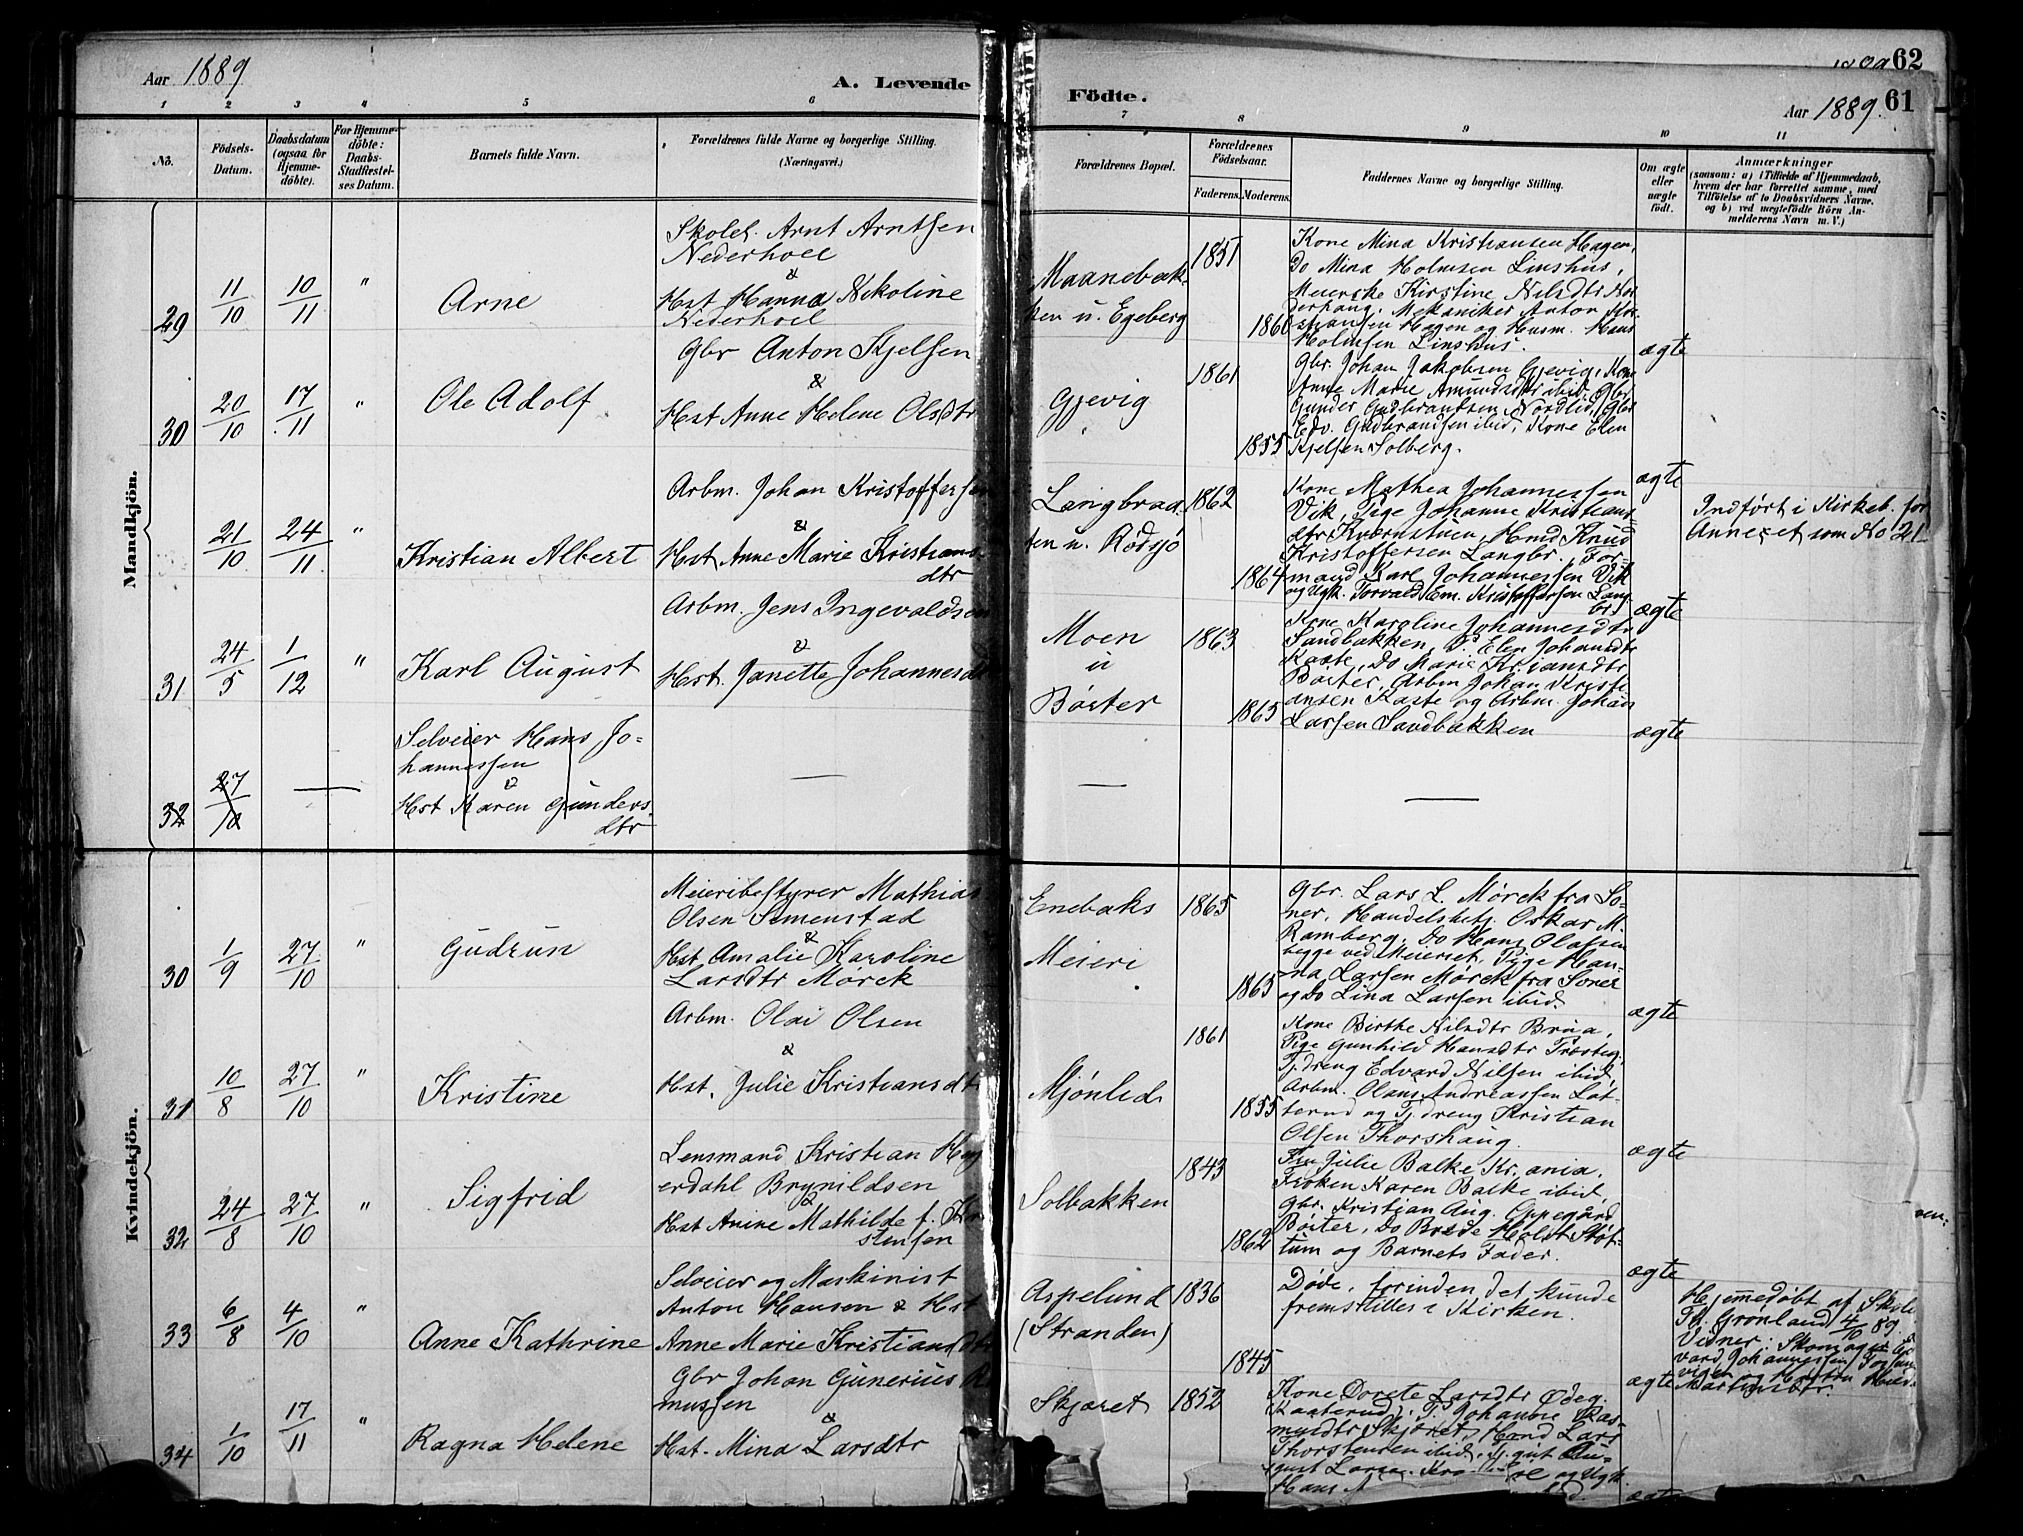 Aar 1889
A. Levende
Födte.
Aar 1889. 61
62
1 2 3 4 5 6 7 8 9 10 11
No.
Födsels-
Datum.
Daabsdatum
(ogsaa for
Hjemme-
döbte).
For Hjemme-
döbte:
Daabs-
Stadfæstel-
ses Datum.
Barnets fulde Navn.
Forældrenes fulde Navne og borgerlige Stilling.
(Næringsvei.)
Forældrenes Bopæl.
Forældrenes
Födselsaar.
Faderens. Moderens.
Faddernes Navne og borgerlige Stilling.
Om ægte
eller
uægte
födt.
Anmærkninger
(saasom: a) i Tilfælde af Hjemmedaab,
hvem der har forrettet samme, med
Tilföielse af to Daabsvidners Navne,
og b) ved uægtefödte Börn An-
melderens Navn m.V.)
Mandkjön.
29
11/10
10/11
"
Arne
Skolel. Arnt Arntsen
Nederhoel
&
Hst Hanna Nikoline
Nederhoel
Maanebak-
ken u. Egeberg
1851
1860
Kone Mina Kristiansen Hagen,
Do Mina Holmsen Linshus,
Meierske Kirstine Nilsdtr Nor
derhaug, Mekaniker Anton Kri-
stiansen Hagen og Husm. Hans
Holmsen Linshus.
ægte
30
20/10
17/11
"
Ole Adolf
Gbr Anton Kjelsen
&
Hst Anne Helene Olsdtr
Gjevig
1861
1855
Gbr. Johan Jakobsen Gjevig, Kone
Anne Marie Amundsdtr ibid, Gbr
Gunder Gudbrantsen Nordlid, Gbr
Edv. Gudbrandsen ibid, Kone Elen
Kjelsen Solberg.
ægte
21/10
24/11
"
Kristian Albert
Arbm. Johan Kristoffersen
&
Hst Anne Marie Kristians-
dtr
Langbraa-
ten u. Rødsjø
1862
1864
Kone Mathea Johannessen
Vik, Pige Johanne Kristians-
dtr Kvernstuen, Husmd Knud
Kristoffersen Langbr., For-
mand Karl Johannessen Vik
og Ugk. Torvald Em. Kristoffersen Lang-
br.
ægte
Indført i Kirkeb. for
Annexet som No 21
31
24/5
1/12
"
Karl August
Arbm. Jens Ingevaldsen
&
Hst. Janette Johannesdt
Moen
u
Børter
1863
1865
Kone Karoline Johannesdtr
Sandbakken, P. Elen Johansdtr
Kaste, Do Marie Kr.iansdtr
Børter, Arbm Johan Kristi-
ansen Kaste og Arbm. Johan
Larsen Sandbakken
ægte
32
27/10
Selveier Hans Jo-
hannessen
&
Hst Karen Gunders
dtr
Kvindekjön.
30
1/9
27/10
"
Gudrun
Meieribestyrer Mathias
Olsen Simenstad
&
Hst Amalie Karoline
Larsdtr Mørck
Enebaks
Meieri
1865
1865
Gbr. Lars L. Mørck fra So-
ner, Handelsbetj. Oskar M.
Ramberg, Do Hans Olafsen
begge ved Meieriet, Pige Han-
na Larsen Mørck fra Soner
og Do Lina Larsen ibid
ægte
31
10/8
27/10
"
Kristine
Arbm. Olai Olsen
&
Hst. Julie Kristiansdtr
Mjønlid
1861
1855
Kone Birthe Nilsdtr Brua,
Pige Gunhild Hansdtr Præsteg.
Tj.dreng Edvard Nilsen ibid,
Arbm. Olaus Andreassen Lot-
terud og Tj.dreng Kristian
Olsen Thorshaug.
ægte
32
24/8
27/10
"
Sigfrid
Lensmand Kristian Heg
erdahl Brynildsen
&
Hst Anine Mathilde f. Kr
stensen
Solbakken
1843
1862
Fru Julie Balke Kr.ania,
Frøken Karen Balke ibid,
Gbr. Kristian Aug. Oppegård
Børter, Do Brede Holst Støt-
tum og Barnets Fader.
ægte
33
6/8
4/10
"
Anne Kathrine
Selveier og Maskinist
Anton Hansen & Hst
Anne Marie Kristiansdtr
Aspelund
(Stranden)
1836
1845
Døde, forinden det kunde
fremstilles i Kirken.
ægte
Hjemmedøbt af Skole
Th. Grønlund 4/10 89.
Vidner: Skomager Ed
vard Johannessen
34
1/10
17/11
"
Ragna Helene
Gbr Johan Gunerius
mussen
&
Hst. Mina Larsdtr
Skjæret
1852
Kone Dorete Larsdtr Ødeg.
P. Johanne Ras-
musdtr Skjæret, Husmd Lars
Thorstensen ibid, Tj.gut Au-
gust Larsen
Hans
ægte